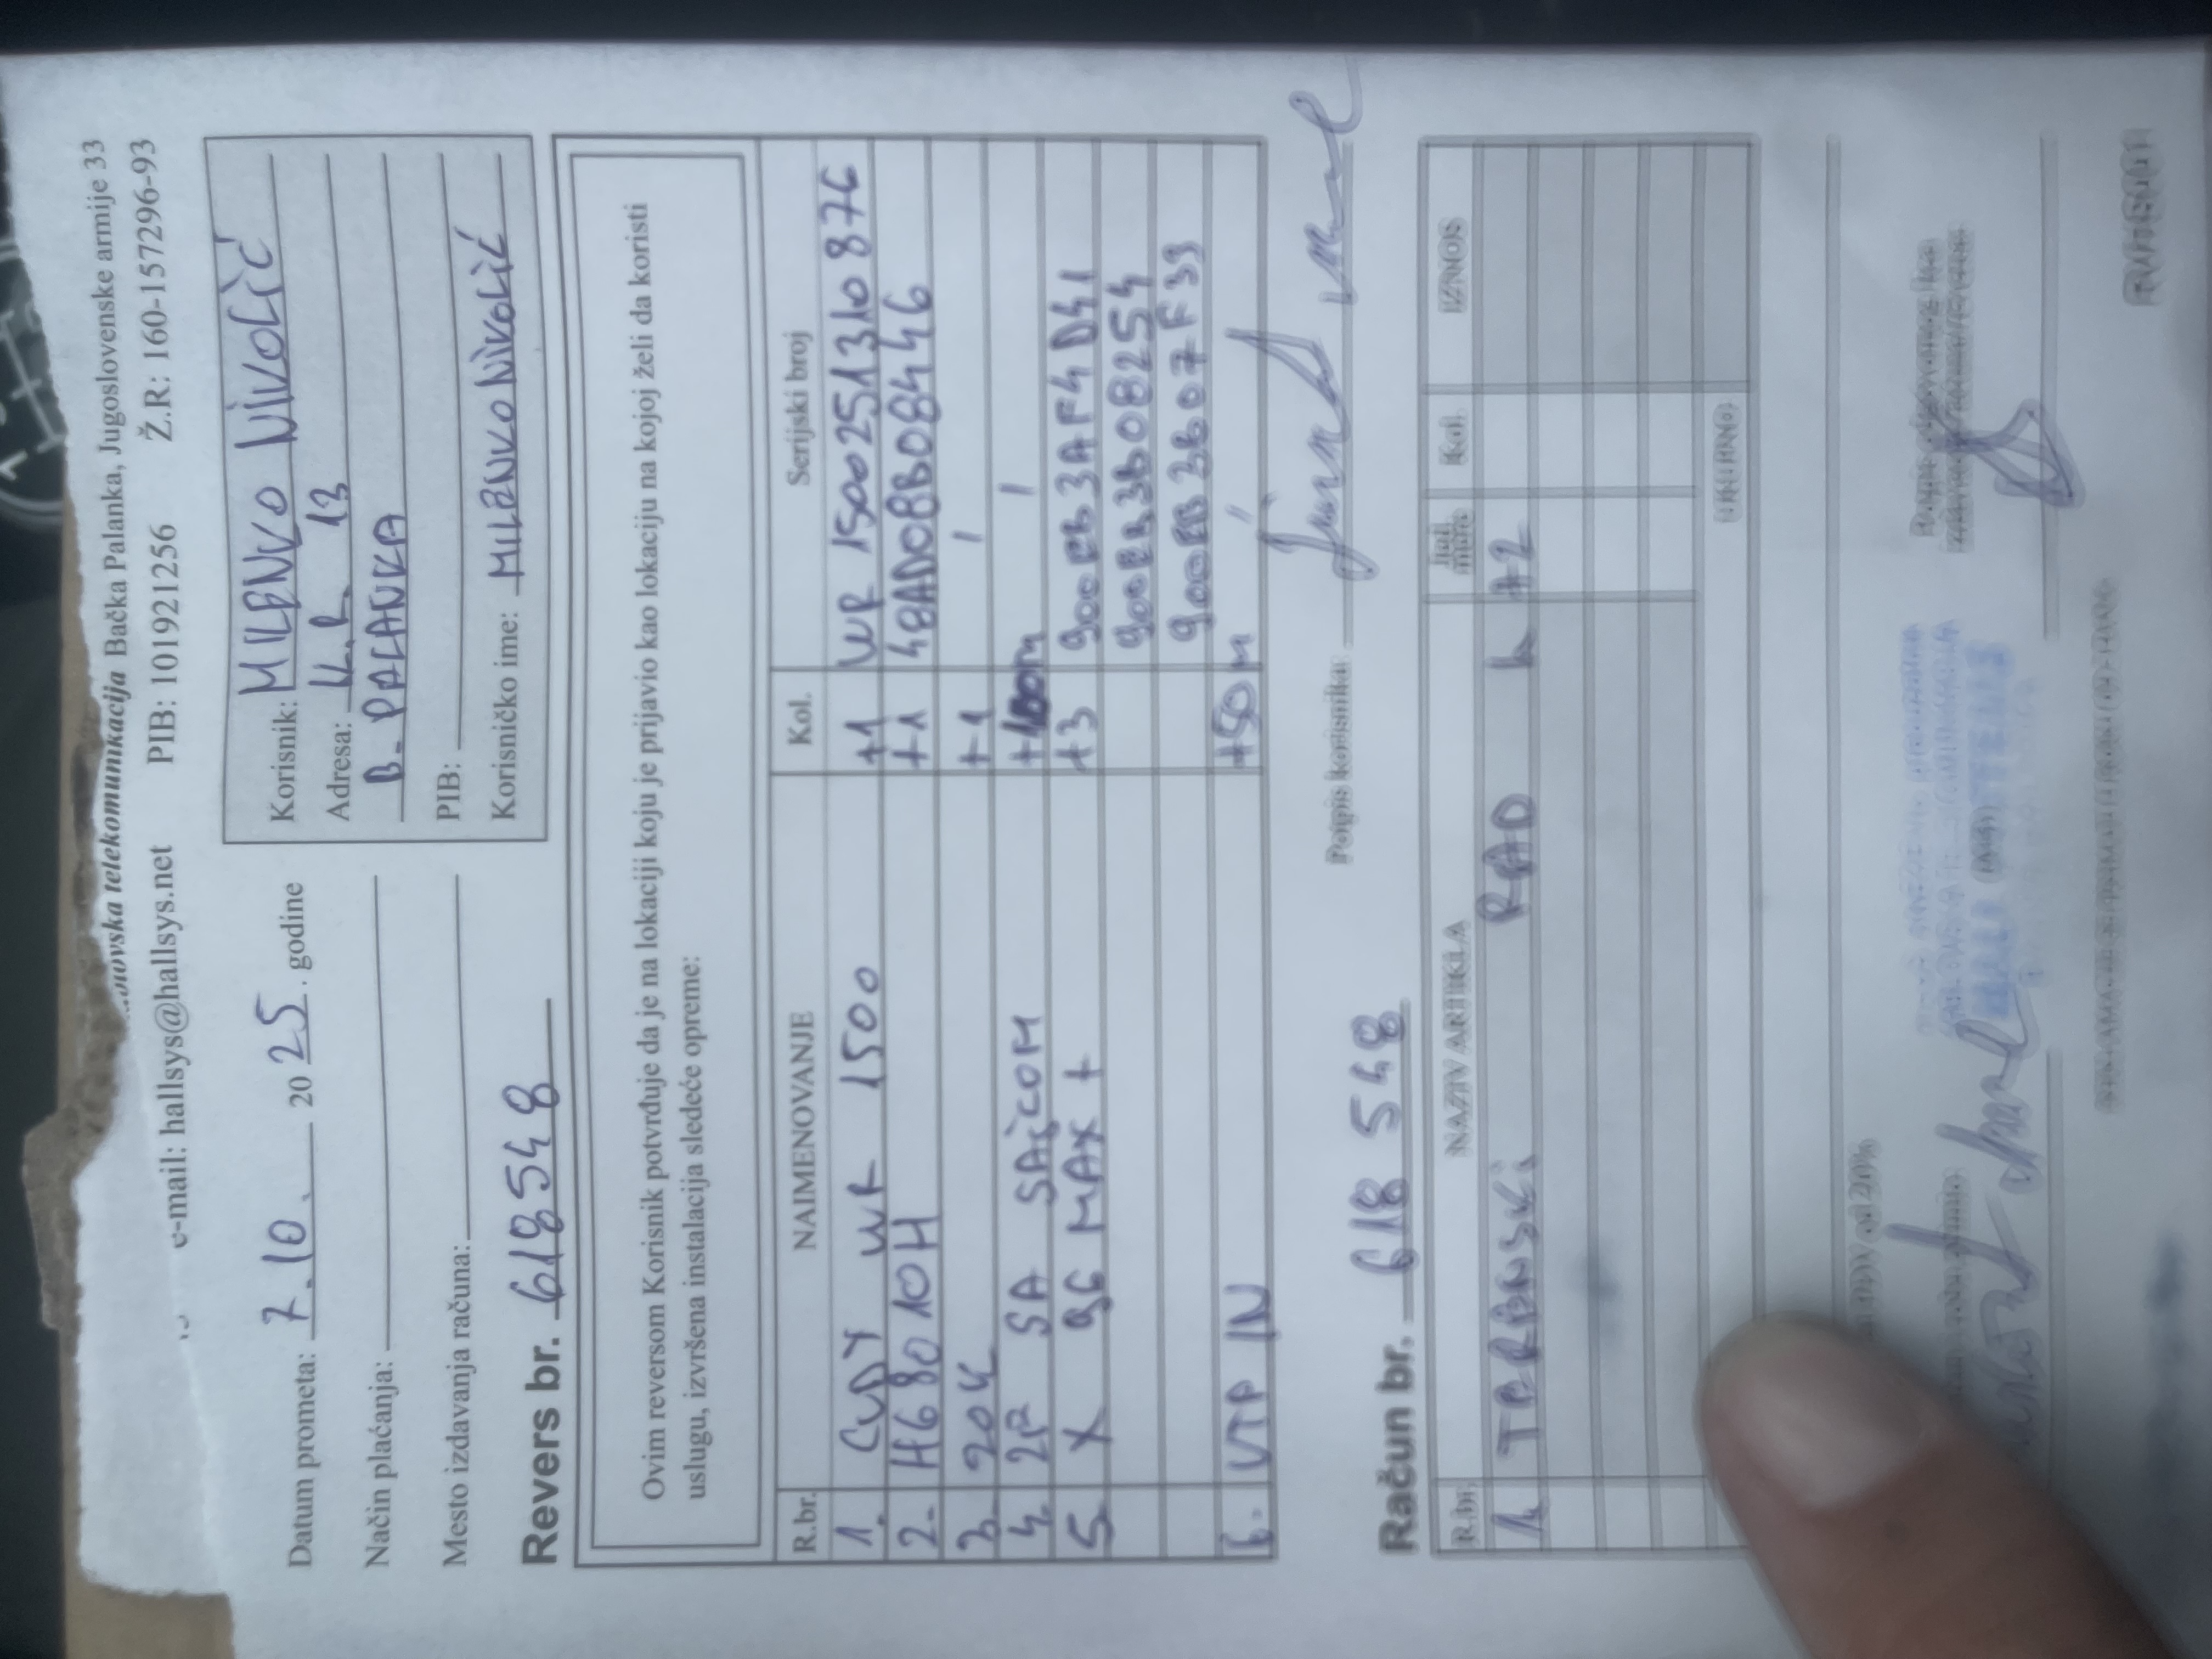 telekomunikacija Bačka Palanka, Jugoslovenske armije 33
e-mail: hallsys@hallsys.net PIB: 101921256 Ž.R: 160-157296-93
Datum prometa: 7.10. 2025. godine
Način plaćanja:
Mesto izdavanja računa:
Korisnik: MILENKO NIKOLIĆ
Adresa: K.R. 13
B. PALANKA
PIB:
Korisničko ime: MILENKO NIKOLIĆ
Revers br. 618548
Ovim reversom Korisnik potvrđuje da je na lokaciji koju je prijavio kao lokaciju na kojoj želi da koristi
uslugu, izvršena instalacija sledeće opreme:
R.br. NAIMENOVANJE Kol. Serijski broj
1. CUDY WR 1500 +1 WR 15002513108 876
2. HG8010H +1 48AD08BB08446
3. 204 +1 /
4. 2P SA SAJLOM /
5. X 96 MAX + +3 900EB3AF4D41
900EB3B08254
900EB3B07F39
6. UTP IN +50m //
Popis korisnika:
Račun br. 618 548
R.br. NAZIV ARTIKLA Jed. mere Kol. IZNOS
1. TERENSKI RAD h #2
UKUPNO